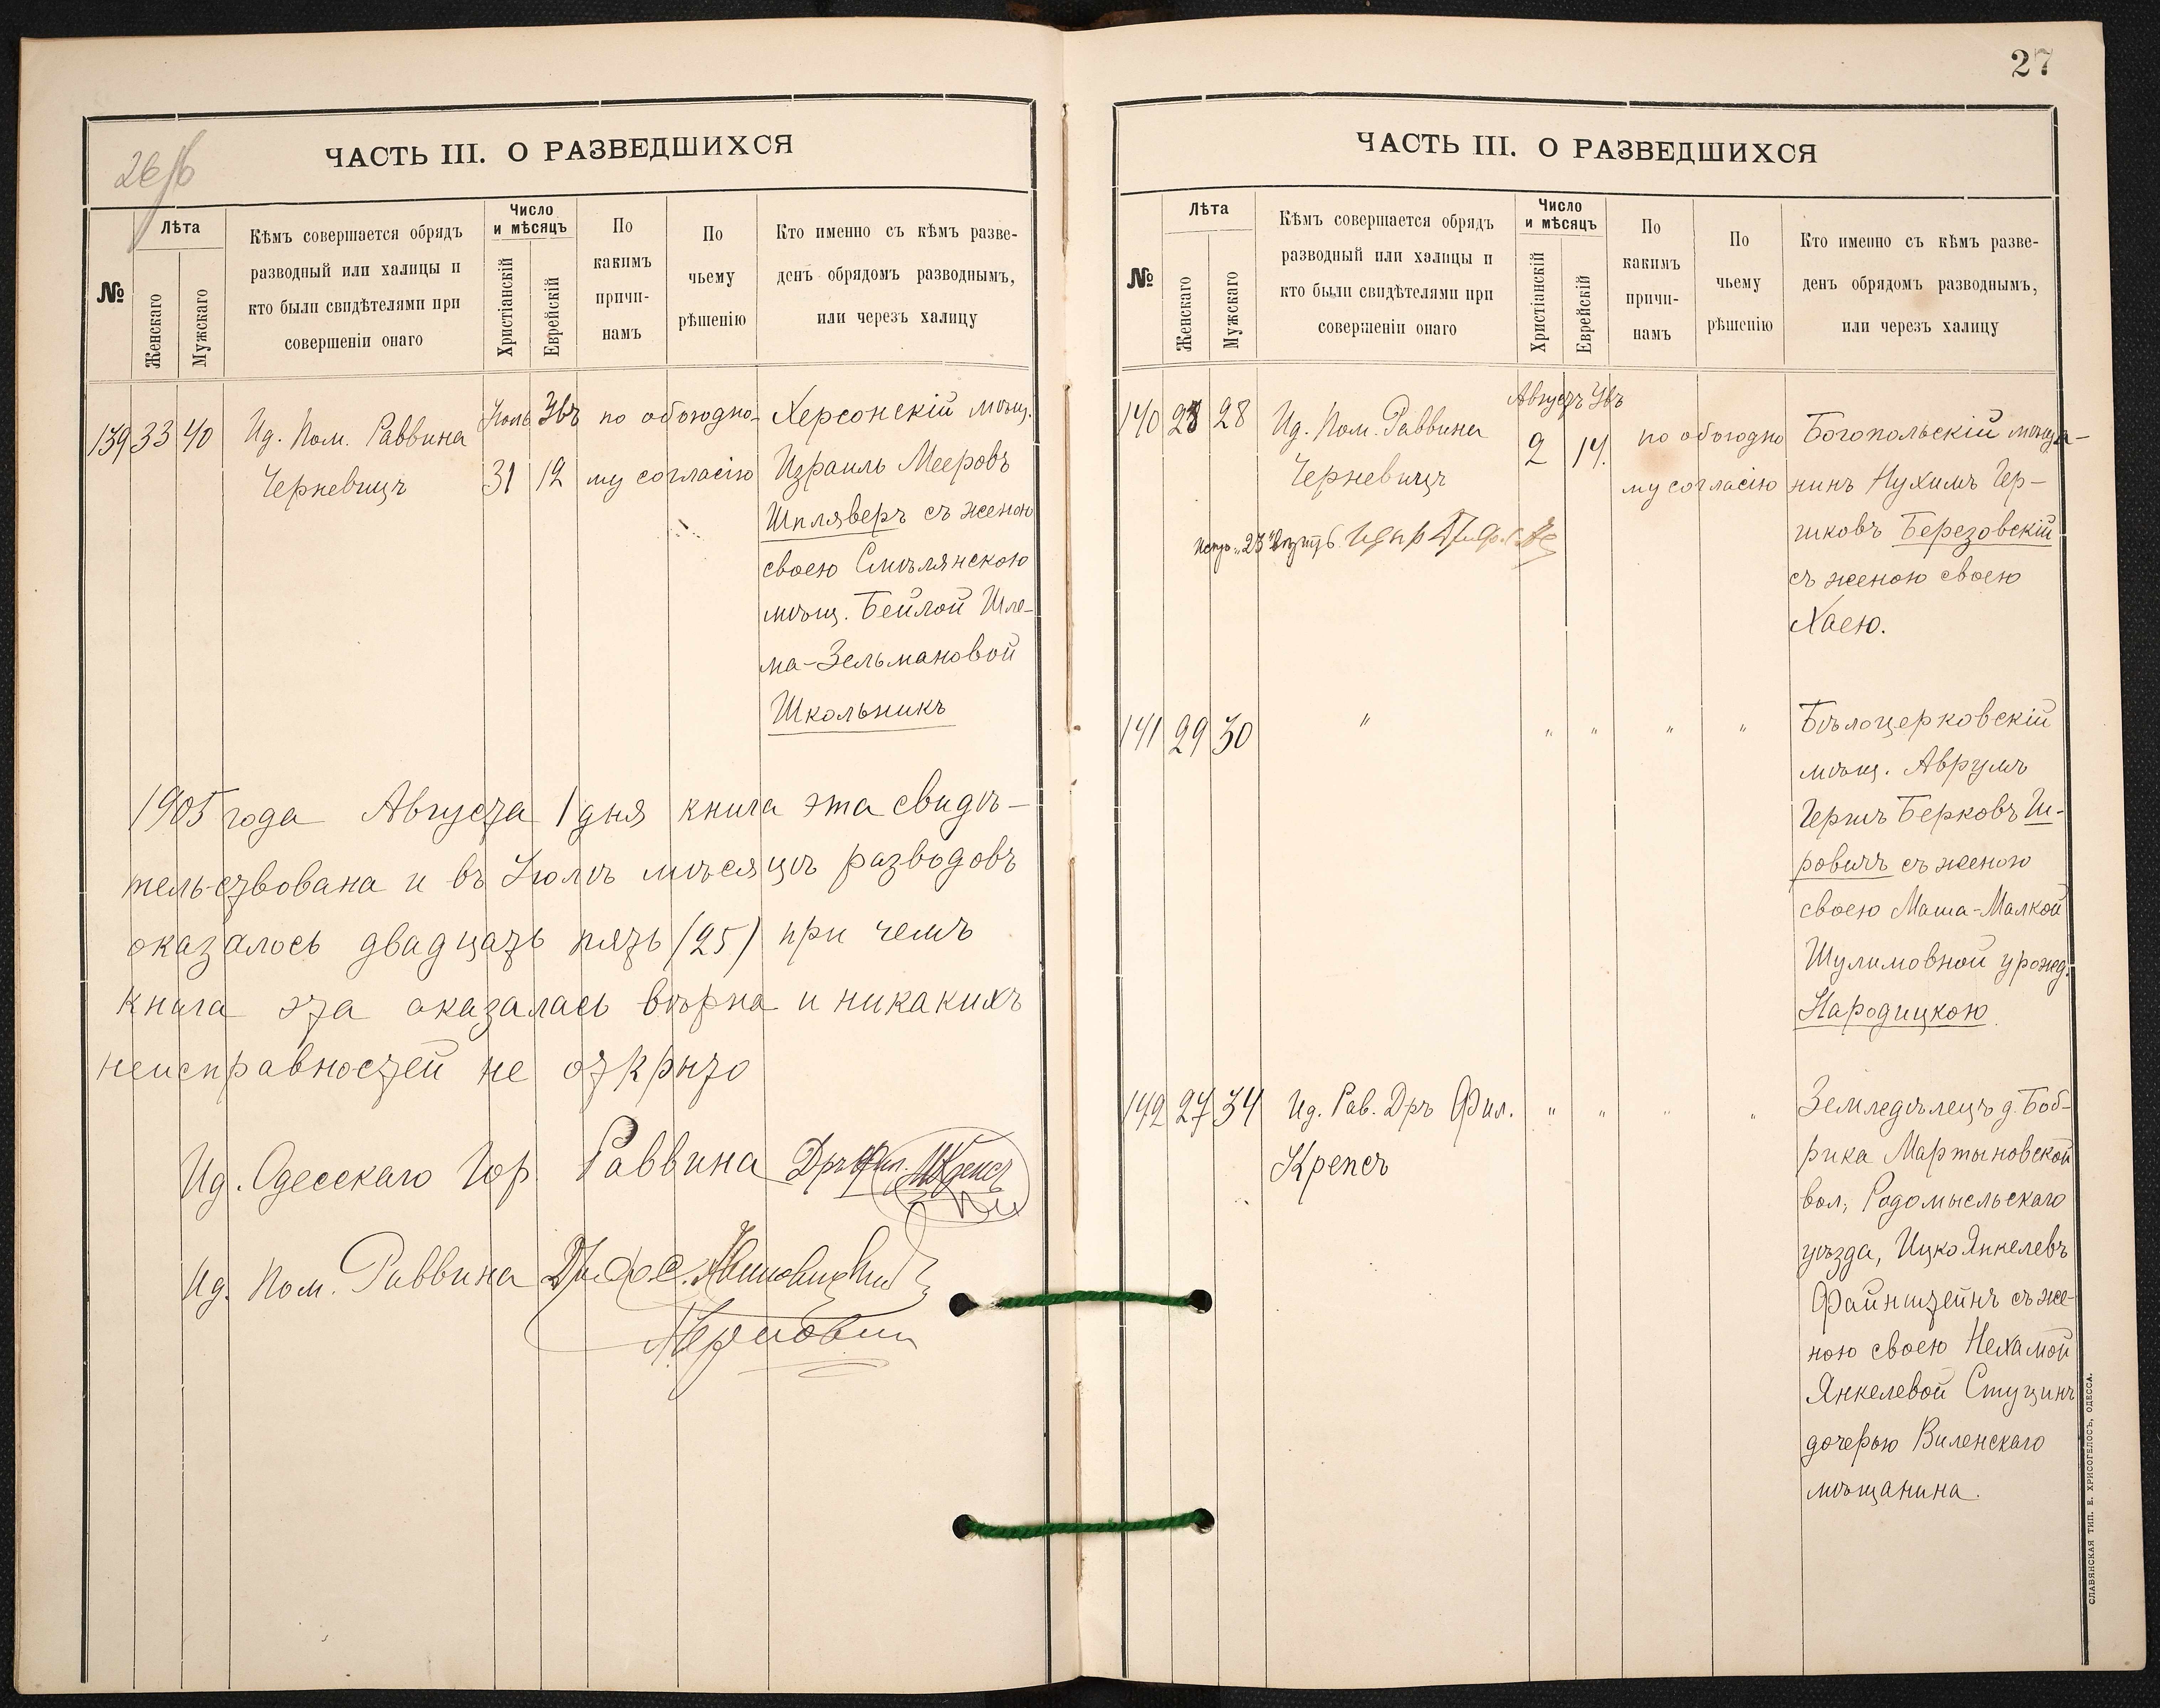 27
26/б
ЧАСТЬ III. О РАЗВЕДШИХСЯ
№
Лѣта
Женскаго
Мужскаго
Кѣмъ совершается обрядъ
разводный или халицы и
кто были свидѣтелями при
совершеніи онаго
Число
и мѣсяцъ
Христіанскій
Еврейскій
По
какимъ
причи-
намъ
По
чьему
рѣшенію
Кто именно съ кѣмъ разве-
денъ обрядомъ разводнымъ,
или черезъ халицу
139 33 40
Ид. Пом. Раввина
Черневицъ
Іюль
31
Увъ
12
по обоюдно-
му согласію
Херсонскій мѣщ.
Израиль Мееровъ
Шпляверъ съ женою
своею Смѣлянскою
мѣщ. Бейлой Шле-
ма-Зельмановой
Школьникъ
1905 года Августа 1 дня книга эта свидѣ-
тельствована и въ Іюлѣ мѣсяцѣ разводовъ
оказалось двадцать пять (25) при чемъ
книга эта оказалась вѣрна и никакихъ
неисправностей не открыто
Ид. Одесскаго Гор. Раввина Дръ Фил. Крепсъ
Ид. Пом. Раввина
ЧАСТЬ III. О РАЗВЕДШИХСЯ
№
Лѣта
Женскаго
Мужскаго
Кѣмъ совершается обрядъ
разводный или халицы и
кто были свидѣтелями при
совершеніи онаго
Число
и мѣсяцъ
Христіанскій
Еврейскій
По
какимъ
причи-
намъ
По
чьему
рѣшенію
Кто именно съ кѣмъ разве-
денъ обрядомъ разводнымъ,
или черезъ халицу
140 23 28
Ид. Пом. Раввина
Черневицъ
Августъ
2
Увъ
14.
по обоюдно
му согласію
Богопольскій мѣща-
нинъ Нухимъ Гер-
шковъ Березовскій
съ женою своею
Хаею.
141 29 30
" " " " "
Бѣлоцерковскій
мѣщ. Аврумъ
Гершъ Берковъ Ш-
ровичъ съ женою
своею Маша-Малкой
Шулимовной урожд.
Народицкою
142 27 34
Ид. Рав. Дръ Фил.
Крепсъ
" " " "
Земледѣлецъ д. Боб-
рика Мартыновской
вол; Родомысльскаго
уѣзда, Ицко Янкелевъ
Файнштейнъ съ же-
ною своею Нехамой
Янкелевой Стуцинъ
дочерью Виленскаго
мѣщанина.
СЛАВЯНСКАЯ ТИП. Е. ХРИСОГЕЛОСЪ, ОДЕССА.